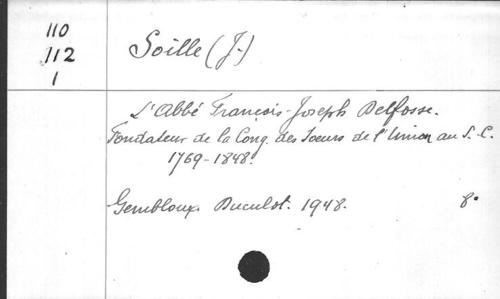 110
112
1
Soille (J.)
L'Abbé François-Joseph Delfosse.
Fondateur de la Cong. des Soeurs de l'Union au S.C.
1769-1848.
Gembloux. Duculot. 1948. 8°